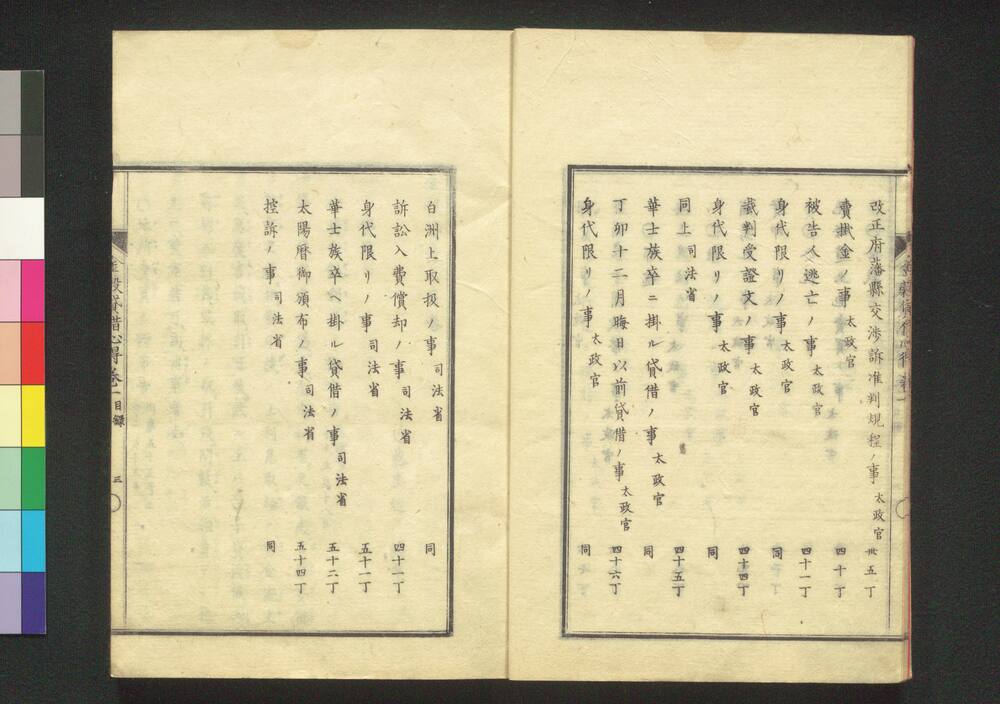 改正府藩縣交渉訴准判規程ノ事 太政官 卅五丁
賣掛金ノ事 太政官 四十丁
被告人逃亡ノ事 太政官 四十一丁
身代限リノ事 太政官 同
裁判受證文ノ事 太政官 四十四丁
身代限リノ事 太政官 同
同上 司法省 四十五丁
華士族卒ニ掛ル貸借ノ事 太政官 同
丁卯十二月晦日以前貸借ノ事 太政官 四十六丁
身代限リノ事 太政官 同
白洲上取扱ノ事 司法省 同
訴訟入費償却ノ事 司法省 四十一丁
身代限リノ事 司法省 五十一丁
華士族卒ヘ掛ル貸借ノ事 司法省 五十二丁
太陽暦御頒布ノ事 司法省 五十四丁
控訴ノ事 司法省 同
金穀貸借心得 巻一 目録 三